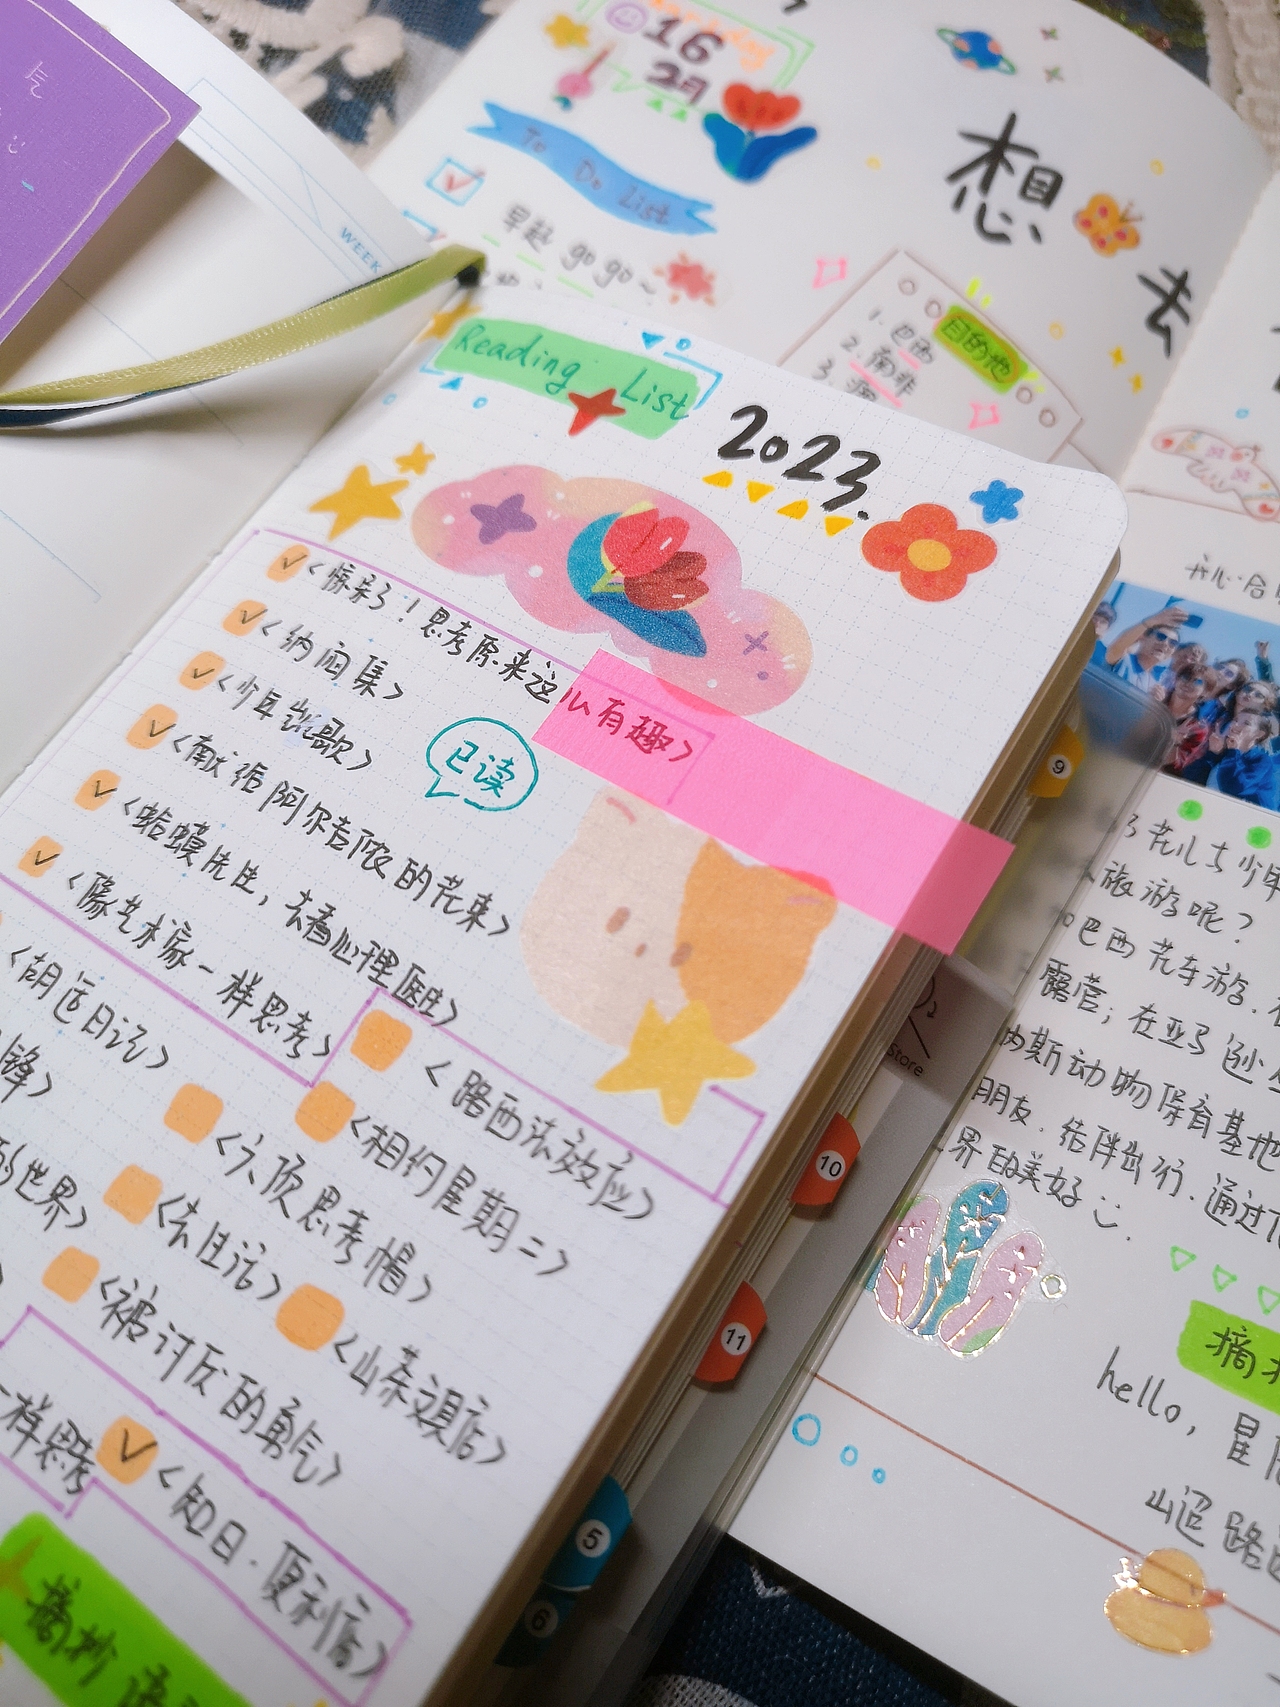 气
WEEK
16
2月
To Do List
早起 go go~
想
去
目的地
1. 巴西
2. 南非
3.
Reading List
2023.
<惊呆了！思考原来这么有趣>
<纳闷集>
<少年出歌>
已读
<献给阿尔吉侬的花束>
<蛤蟆先生，去看心理医生>
<像艺术家一样思考>
<胡适日记>
锋>
<路西法效应>
的世界>
<六顶思考帽>
<相约星期二>
<朱自清>
<被讨厌的勇气>
<山茶文具店>
一样思考
<知日·便利店>
摘抄
开心合
9
花儿与少年
旅游呢？
巴西 花车游.
露营；在亚
纳斯动物保育基地
朋友. 结伴出行. 通过
世界的美好
store
10
11
5
6
摘
hello, 冒